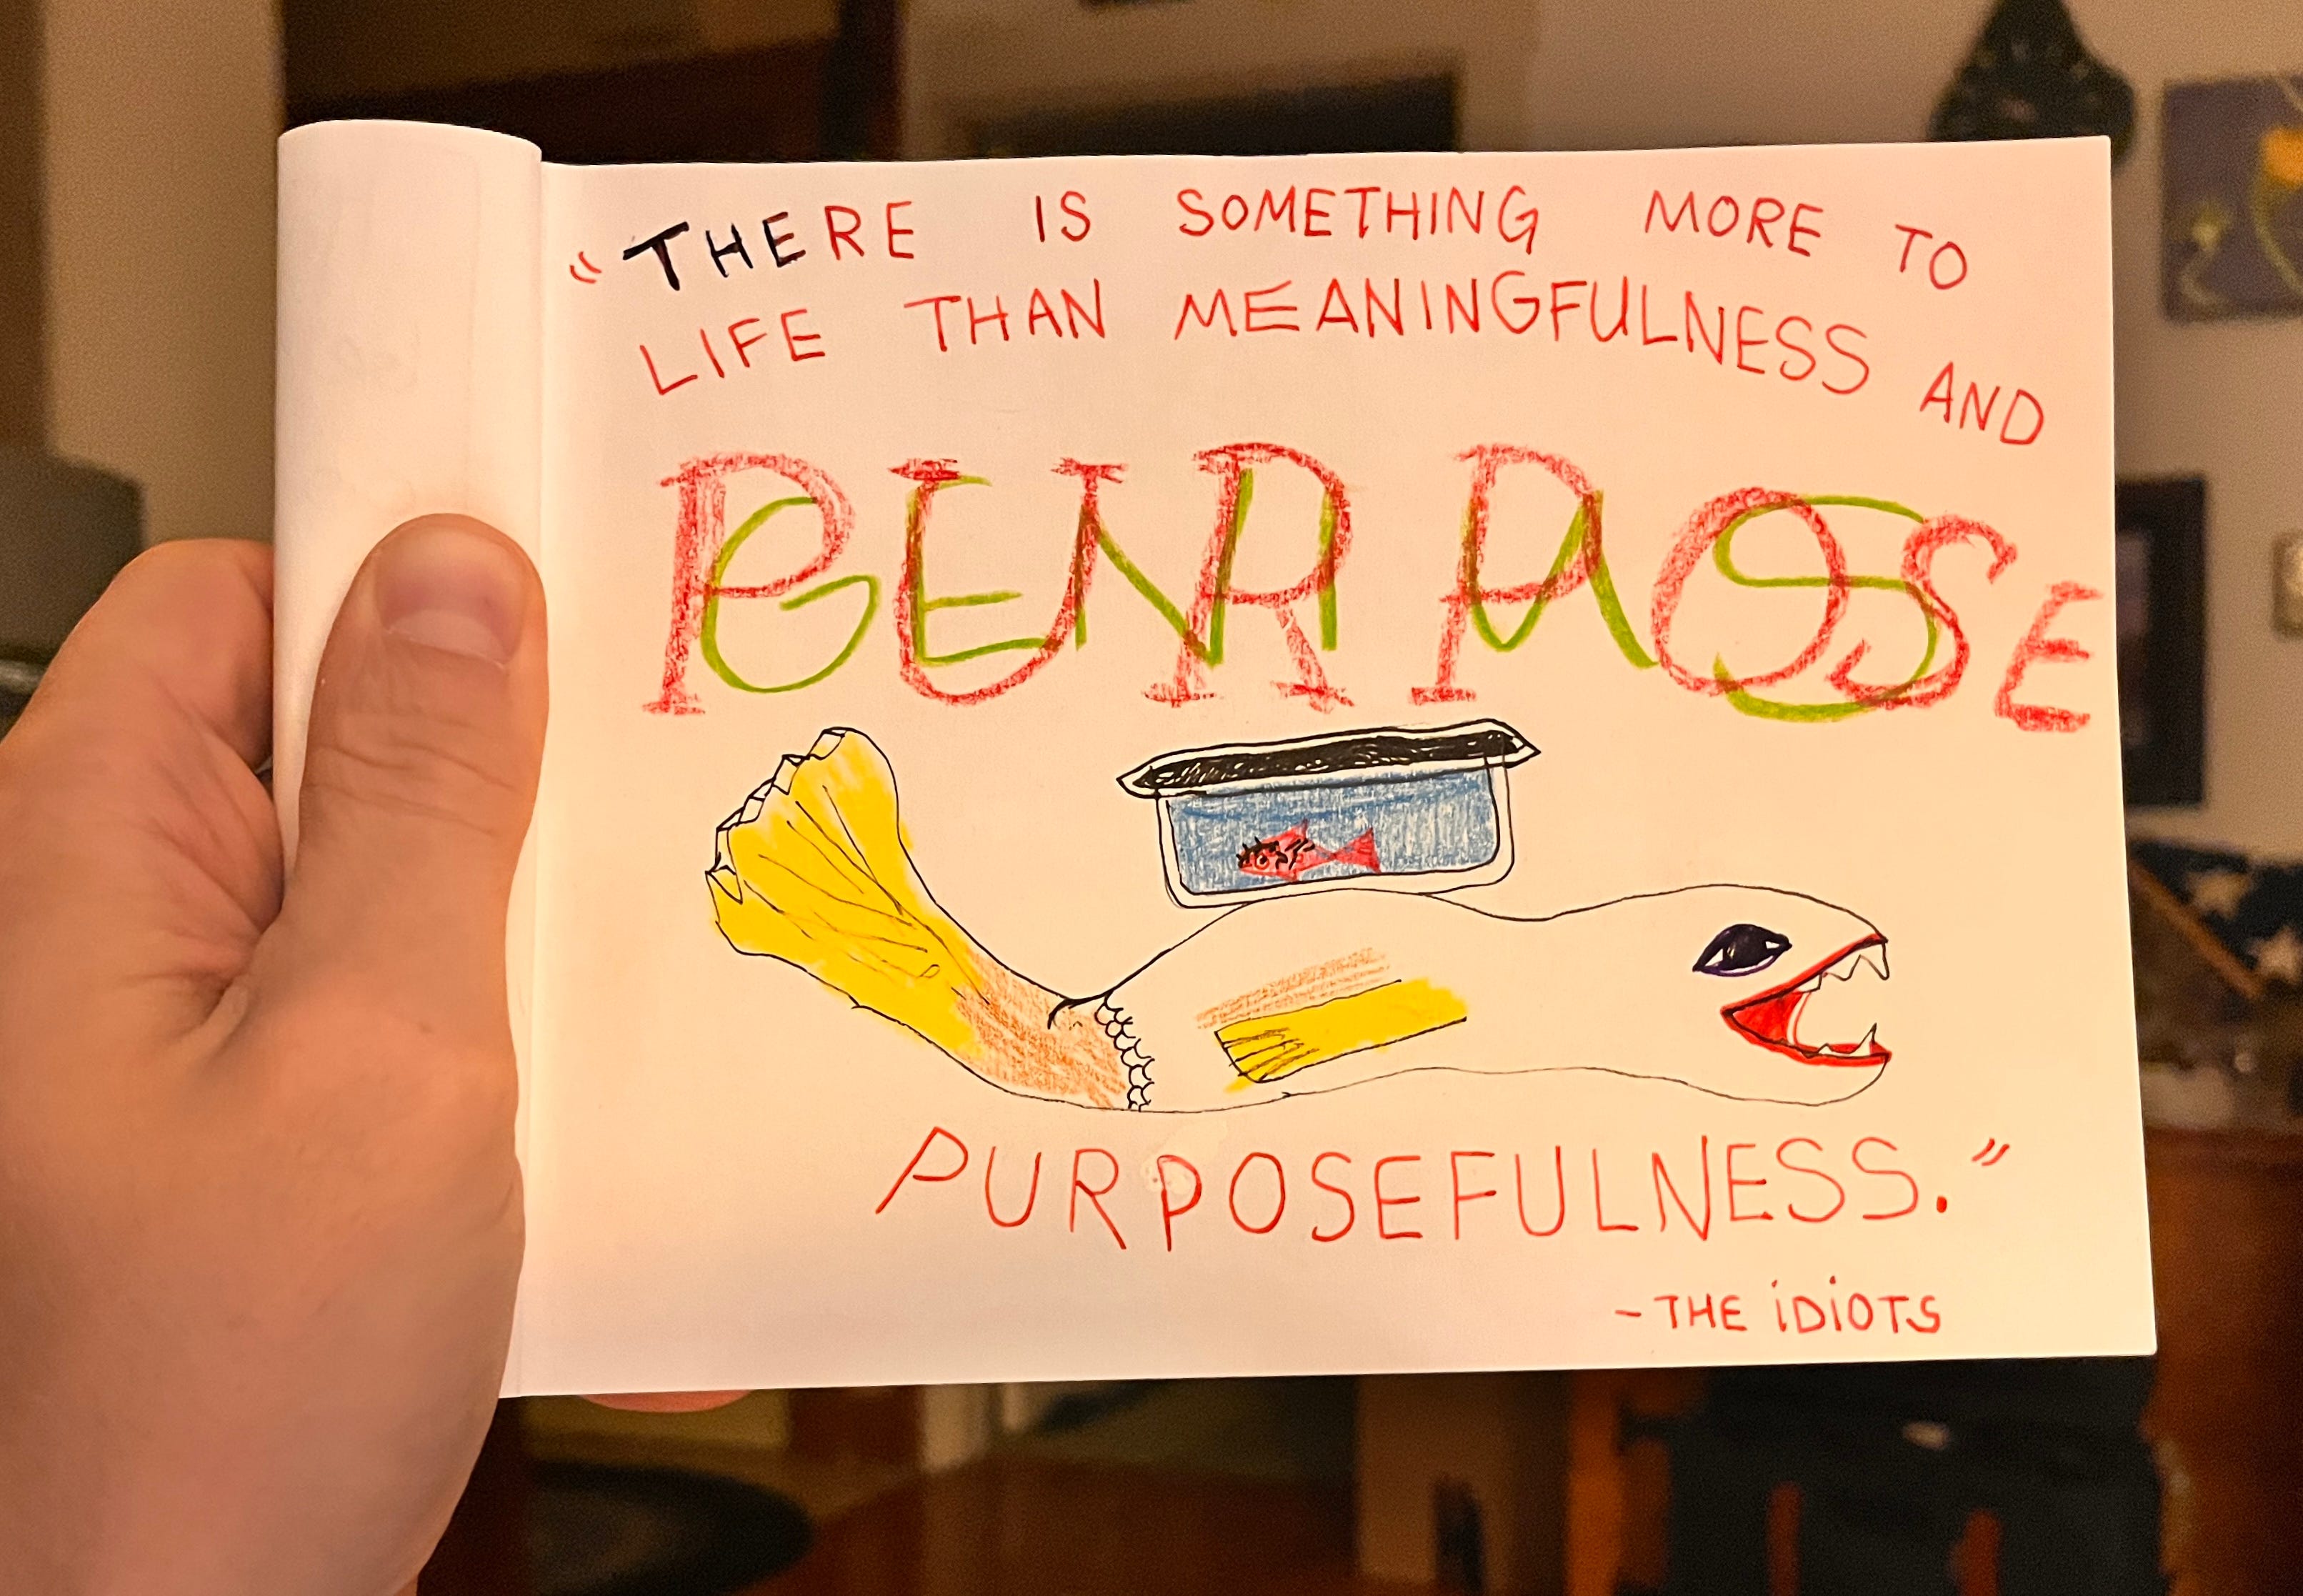 "THERE IS SOMETHING MORE TO
LIFE THAN MEANINGFULNESS AND
PURPOSE
GENIUS
PURPOSEFULNESS."
-THE iDiOTS